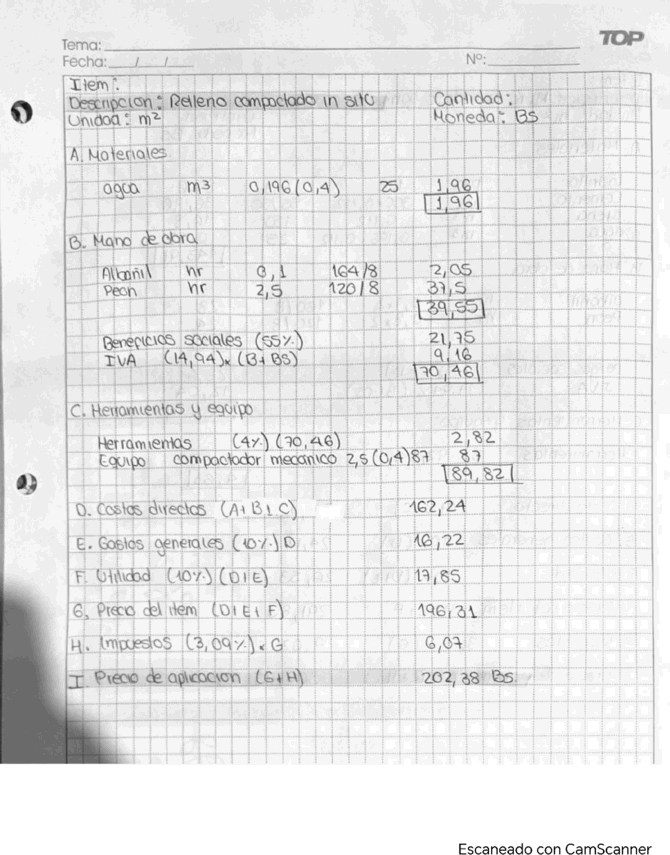 TOP
Tema:
Fecha: / /
Nº:
Item:
Descripcion: Relleno compactado in situ Cantidad:
Unidad: m² Moneda: BS
A. Materiales
agua m³ 0,196(0,4) 25 1,96
1,96
B. Mano de obra
Albañil hr 0,1 164/8 2,05
Peon hr 2,5 120/8 37,5
39,55
Beneficios sociales (55%) 21,75
IVA (14,94)*(B+BS) 9,16
70,46
C. Herramientas y equipo
Herramientas (4%)(70,46) 2,82
Equipo compactador mecanico 2,5(0,4)87 87
89,82
D. Costos directos (A+B+C) 162,24
E. Gastos generales (10%)D 16,22
F. Utilidad (10%)(D+E) 17,85
G. Precio del item (D+E+F) 196,31
H. Impuestos (3,09%)*G 6,07
I Precio de aplicacion (G+H) 202,38 BS.
Escaneado con CamScanner